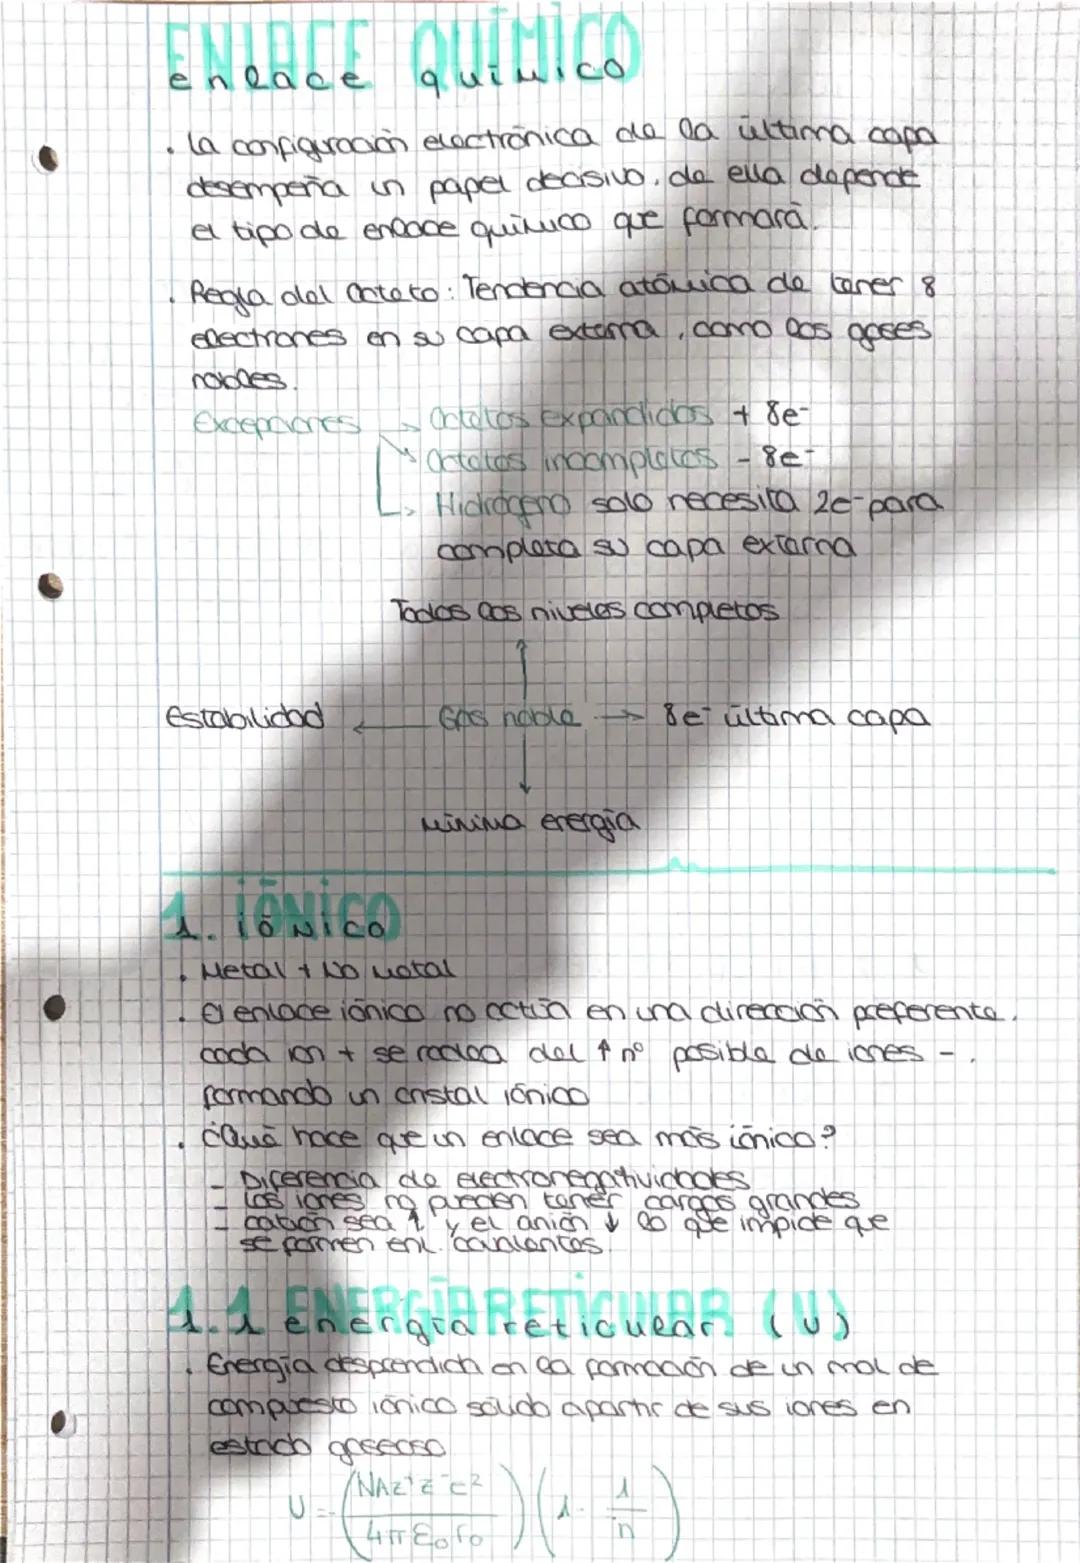 ENLACE QUÍMICO
enlace químico
. La configuración electrónica de la última capa
desempeña un papel decisivo. de ella depende
el tipo de enlace químico que formará.
. Regla del octeto: Tendencia atómica de tener 8
electrones en su capa externa, como los gases
nobles.
Excepciones → Octetos expandidos + 8e-
→ Octetos incompletos - 8e-
→ Hidrógeno solo necesita 2e- para
completa su capa externa
Todos los niveles completos
Estabilidad ← Gas noble → 8e- última capa
mínima energía
1. iÓNiCO
1. iónico
. Metal + No metal
. El enlace iónico no actúa en una dirección preferente.
cada ion + se rodea del ↑ nº posible de iones -.
formando un cristal iónico
. ¿Qué hace que un enlace sea más iónico?
- Diferencia de electronegatividades
- Los iones no pueden tener cargas grandes
- catión sea ↑ y el anión ↓ lo que impide que
se formen enl. covalentes.
1.1 ENERGÍA RETICULAR (U)
1.1 energía reticular (U)
. Energía desprendida en la formación de un mol de
compuesto iónico sólido a partir de sus iones en
estado gaseoso
U = - (NAZ+Z-e2 / 4πε0r0) (1 - 1/n)